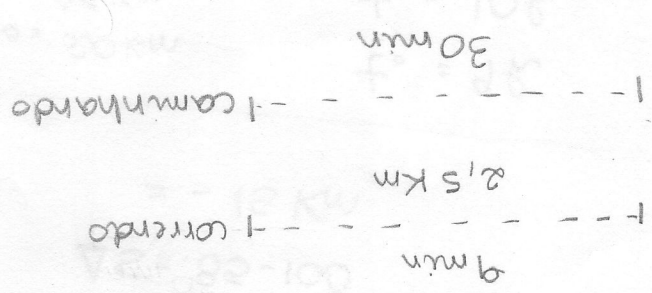 9 min
correndo
2,5 Km
caminhando
30 min